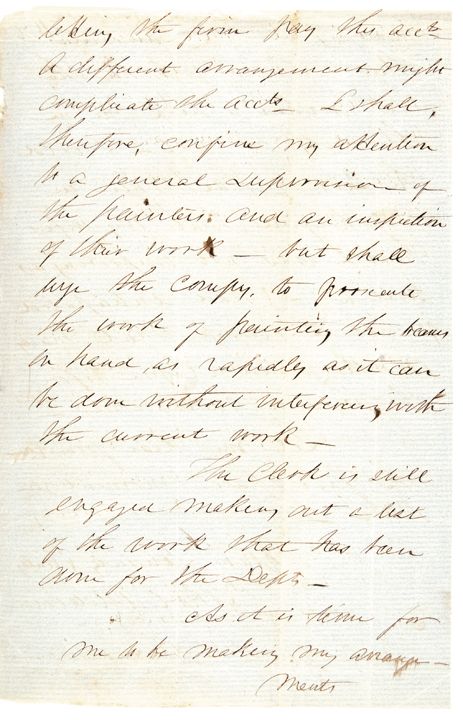 letting the firm pay this acct.
A different arrangement might
complicate the accts. I shall,
therefore, confine my attention
to a general supervision of
the painters and an inspection
of their work — but shall
urge the Compy. to prosecute
the work of painting the beams
on hand, as rapidly as it can
be done without interfering with
the current work —
The Clerk is still
engaged making out a list
of the work that has been
done for the Dept. —
As it is time for
me to be making my arrange-
ments